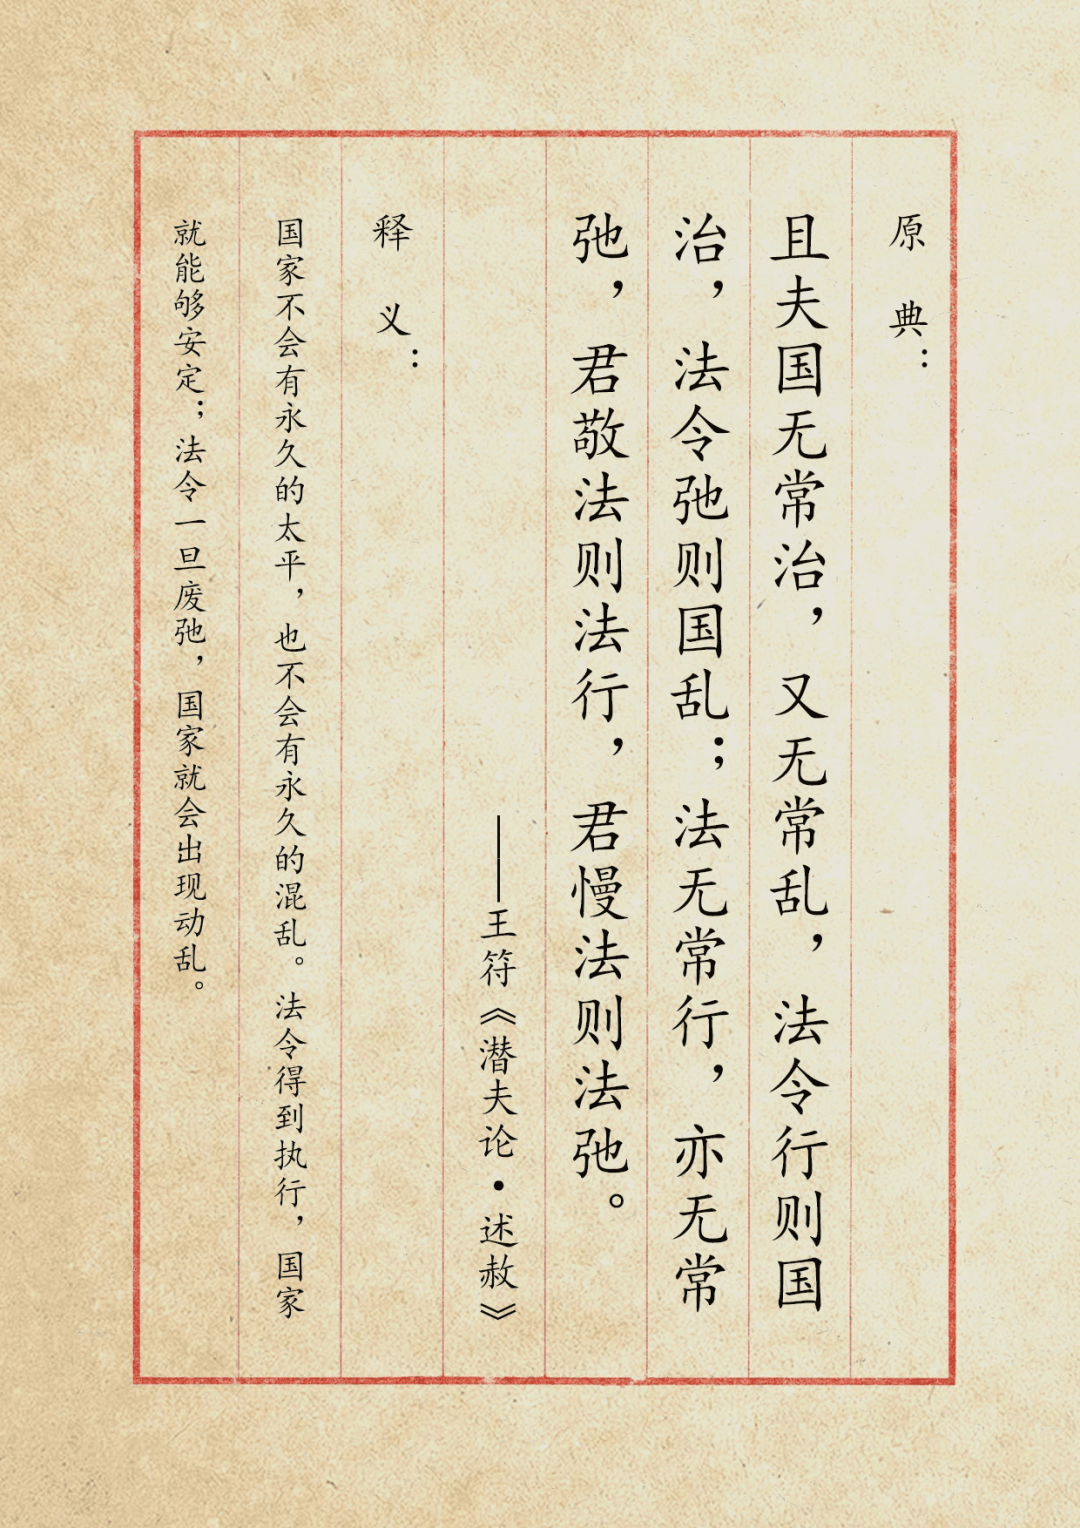 原典：
且夫国无常治，又无常乱，法令行则国
治，法令弛则国乱；法无常行，亦无常
弛，君敬法则法行，君慢法则法弛。
——王符《潜夫论·述赦》
释义：
国家不会有永久的太平，也不会有永久的混乱。法令得到执行，国家
就能够安定；法令一旦废弛，国家就会出现动乱。